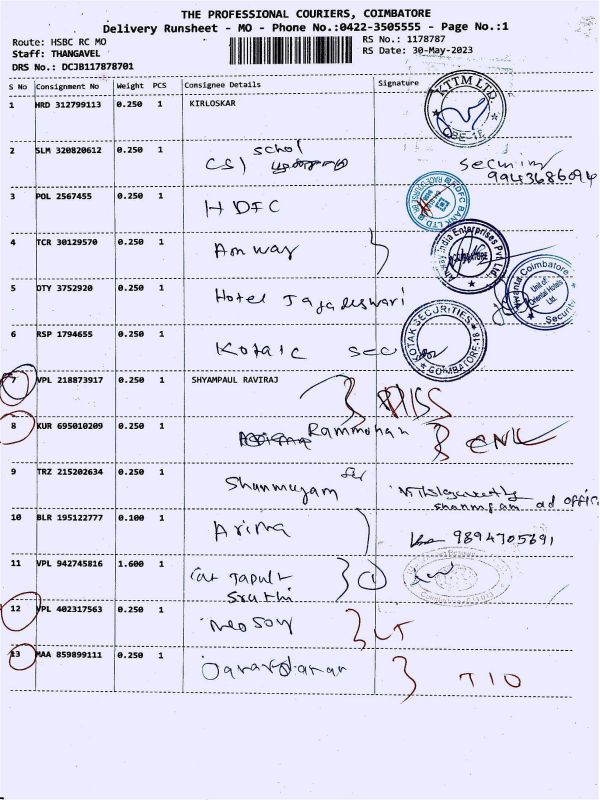 THE PROFESSIONAL COURIERS, COIMBATORE
Delivery Runsheet - MO - Phone No.:0422-3505555 - Page No.:1
Route: HSBC RC MO
Staff: THANGAVEL
DRS No.: DCJB117878701
RS No.: 1178787
RS Date: 30-May-2023
S No Consignment No Weight PCS Consignee Details Signature
1 HRD 312799113 0.250 1 KIRLOSKAR
KTTM LTD.
CBE-18
2 SLM 320820612 0.250 1 CSI School
Security
9943686094
3 POL 2567455 0.250 1 HDFC
HDFC BANK LTD
4 TCR 30129570 0.250 1 Amway
Amway India Enterprises Pvt Ltd.
COIMBATORE
5 DTY 3752920 0.250 1 Hotel Jagadeswari
Coimbatore
Unit of
Oriental Hotels
Ltd.
Security
6 RSP 1794655 0.250 1 Kotak Sec
KOTAK SECURITIES
COIMBATORE-18
7 VPL 218873917 0.250 1 SHYAMPAUL RAVIRAJ
MISS
8 KUR 695010209 0.250 1 Rammohan
CNL
9 TRZ 215202634 0.250 1 Shanmugam
Shanmugam ad office
10 BLR 195122777 0.100 1 Arima
9894705691
11 VPL 942745816 1.600 1 Cat Tapult
Srathi
1
12 VPL 402317563 0.250 1 Neo Soy
LT
13 MAA 859899111 0.250 1 Janardanan
TIO